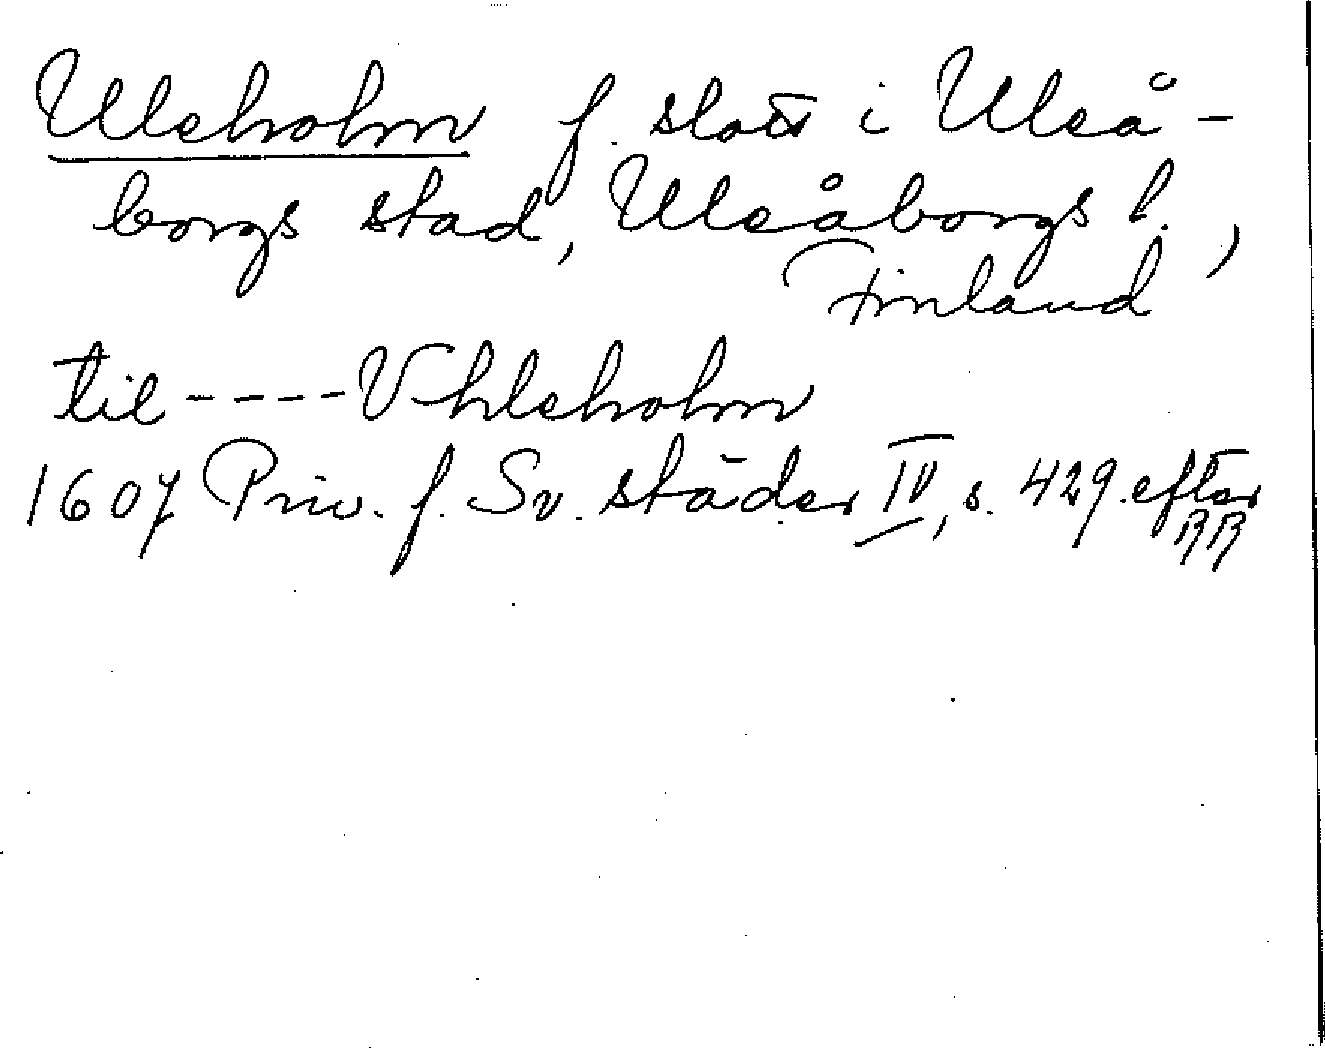 Uleholm f. slott i Uleå-
borgs stad, Uleåborgs l.,
Finland
til ---- Vhleholm
1607 Priv. f. Sv. städer IV, s. 429 efter
RR